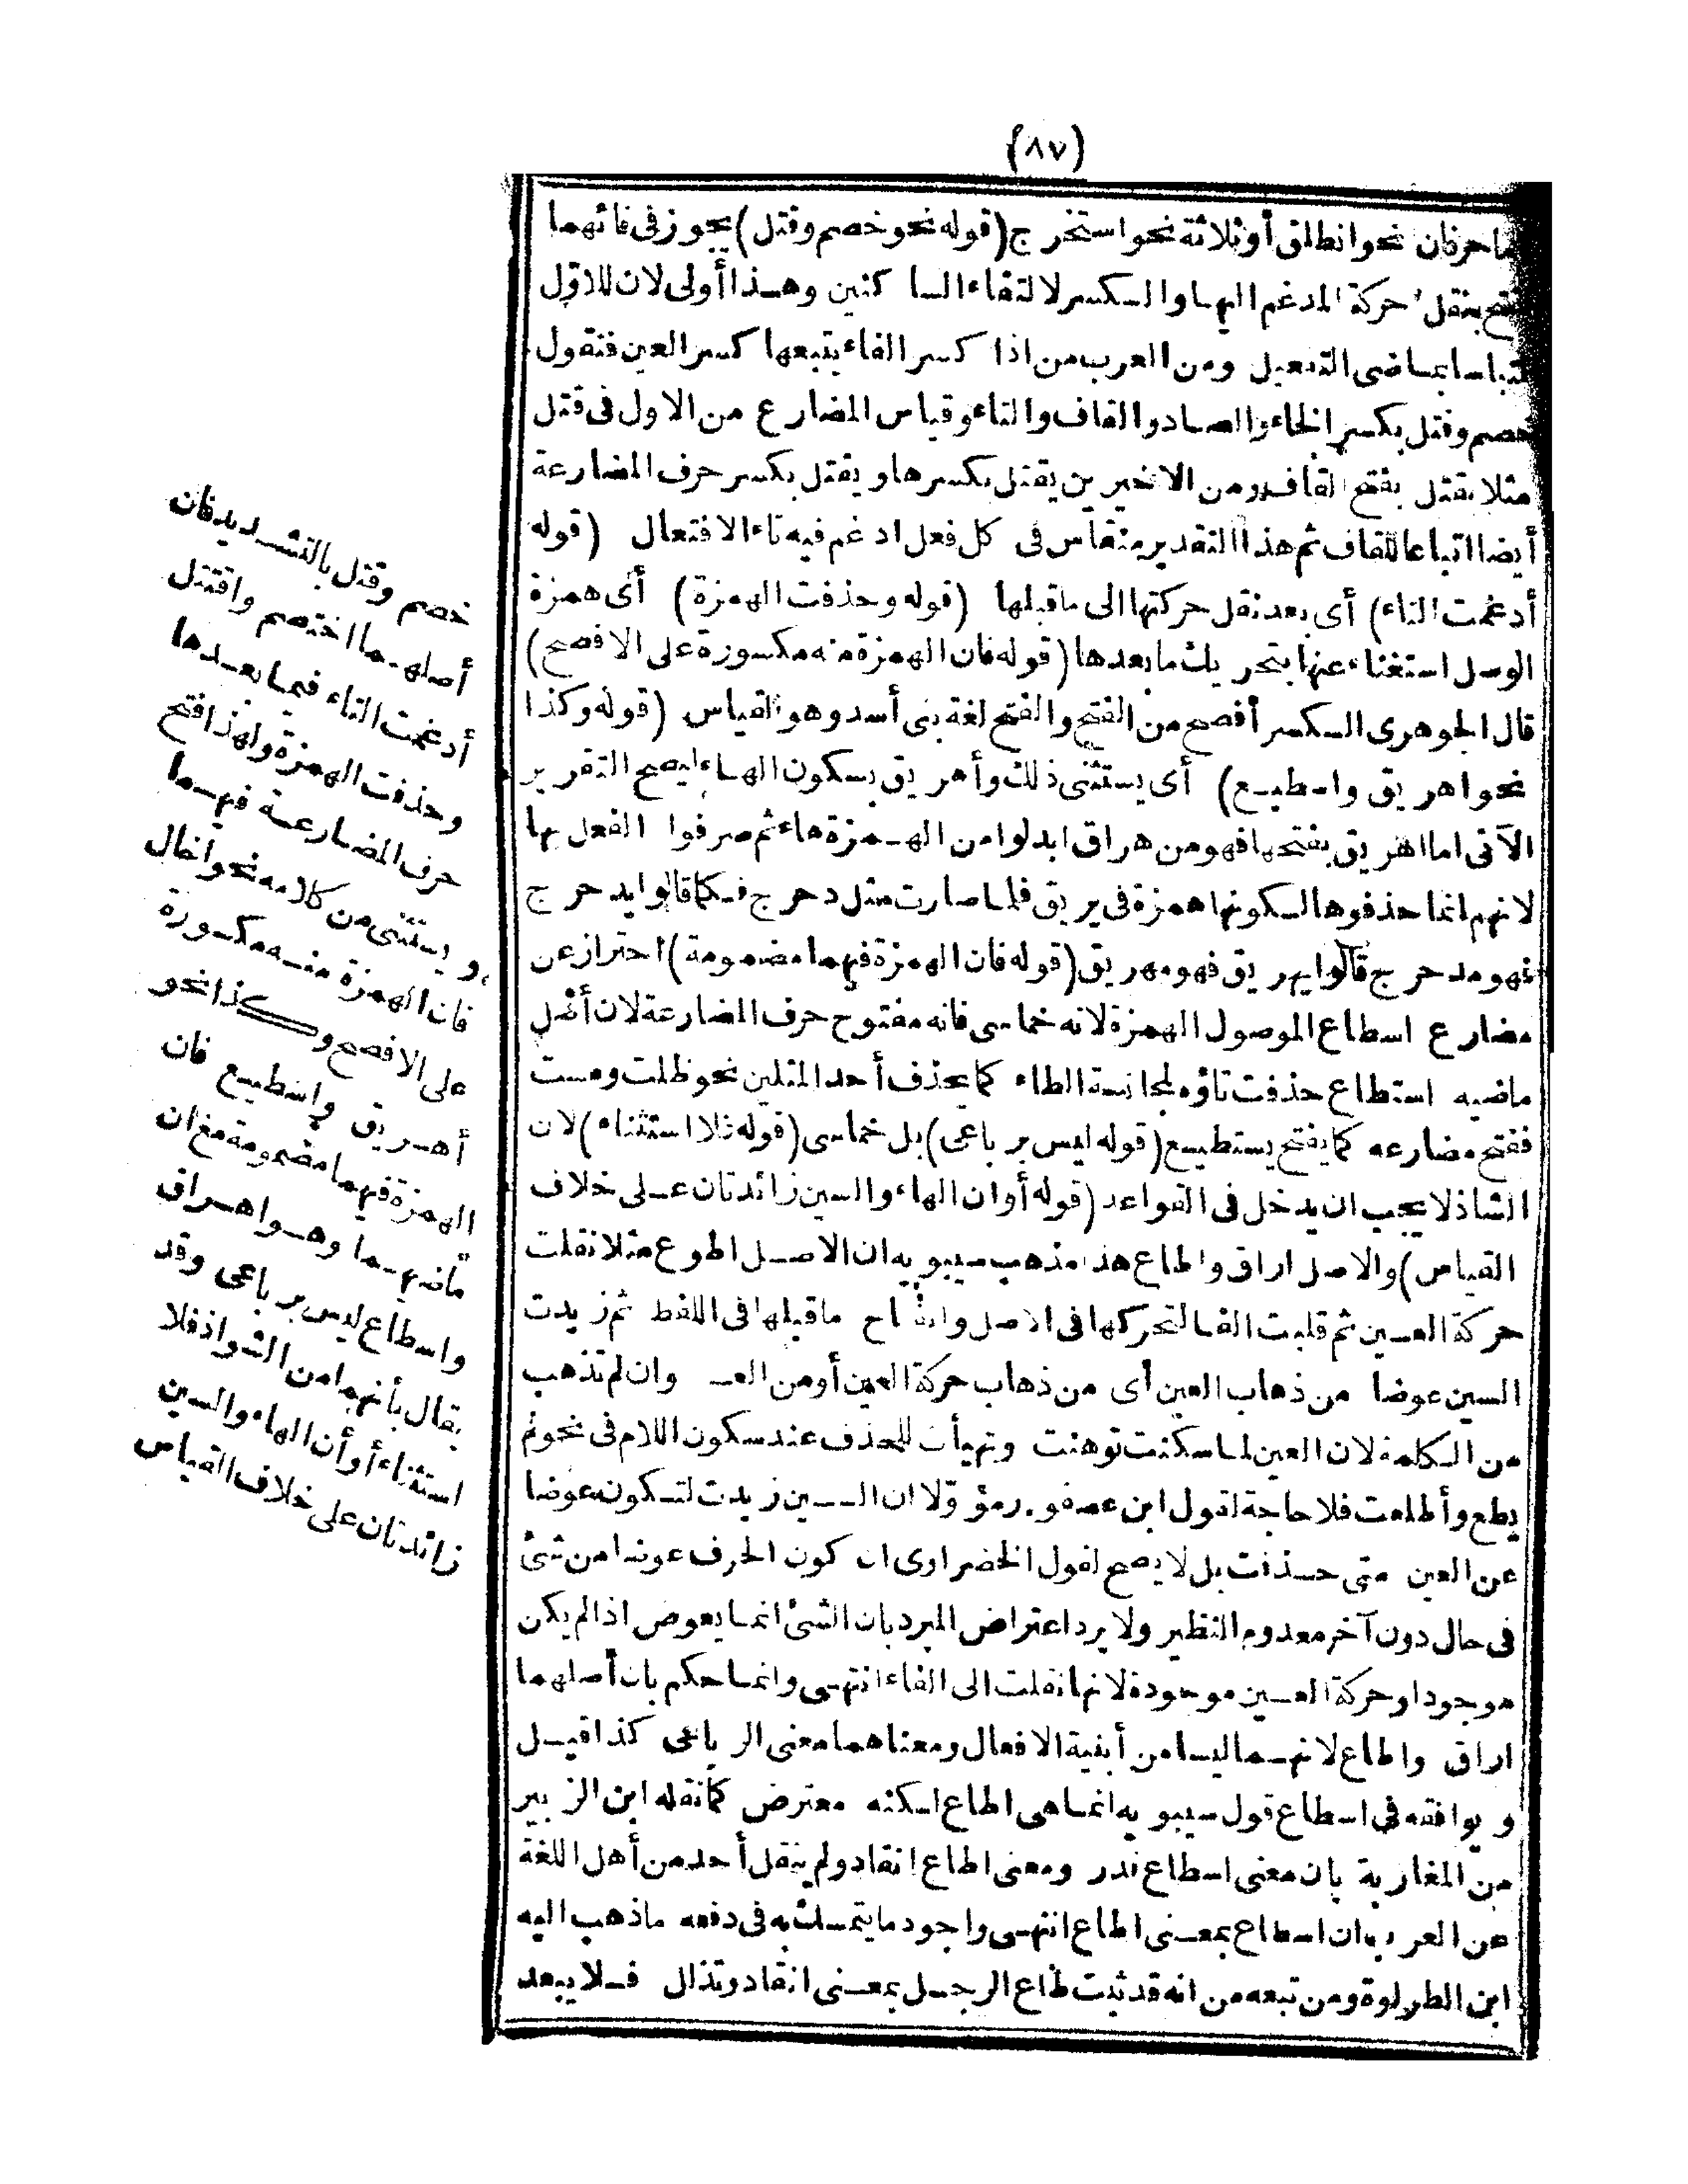 (٨٧)
حرفان نحو انطلق أو ثلاثة نحو استخرج (قوله نحو خصم وقتل) يجوز فى فائهما
بنقل حركة المدغم اليها والكسر لالتقاء الساكنين وهذا أولى لان للاول
بماضى التفعيل ومن العرب من اذا كسر الفاء يتبعها كسر العين فتقول
خصم وقتل بكسر الخاء والصاد والقاف والتاء وقياس المضارع من الاول فى قتل
مثلا يقتل بفتح القاف ومن الاخيرين يقتل بكسرها ويقتل بكسر حرف المضارعة
أيضا اتباعا للقاف ثم هذا التقدير منقاس فى كل فعل ادغم فيه تاء الافتعال (قوله
أدغمت التاء) أى بعد نقل حركتها الى ما قبلها (قوله وحذفت الهمزة) أى همزة
الوصل استغناء عنها بتحريك ما بعدها (قوله فان الهمزة منه مكسورة على الافصح)
قال الجوهرى الكسر أفصح من الفتح والفتح لغة بنى أسد وهو القياس (قوله وكذا
نحو اهريق واسطيع) أى يستثنى ذلك وأهريق بسكون الهاء ليصح التقرير
الآتى اما اهريق بفتحها فهو من هراق ابدلوا من الهمزة هاء ثم صرفوا الفعل بها
لانهم انما حذفوها لسكونها همزة فى يريق فلما صارت مثل دحرج فكما قالوا يدحرج
فهو مدحرج قالوا يهريق فهو مهريق (قوله فان الهمزة فيهما مضمومة) احتراز عن
مضارع اسطاع الموصول الهمزة لانه خماسى فانه مفتوح حرف المضارعة لان أصل
ماضيه استطاع حذفت تاؤه لمجانسة الطاء كما يحذف أحد المثلين نحو ظلت ومست
ففتح مضارعه كما يفتح يستطيع (قوله ليس برباعى) بل خماسى (قوله فلا استثناء) لان
الشاذ لا يجب ان يدخل فى القواعد (قوله أو ان الهاء والسين زائدتان على خلاف
القياس) والاصل اراق واطاع هذا مذهب سيبويه ان الاصل اطوع مثلا نقلت
حركة العين ثم قلبت الفا لتحركها فى الاصل وانفتاح ما قبلها فى اللفظ ثم زيدت
السين عوضا من ذهاب العين أى من ذهاب حركة العين أو من العـ وان لم تذهب
من الكلمة لان العين لما سكنت توهنت وتهيأت للحذف عند سكون اللام فى نحو لم
يطع وأطلعت فلا حاجة لقول ابن عصفور مؤولا ان السين زيدت لتكون عوضا
عن العين متى حذفت بل لا يصح لقول الخضراوى ان كون الحرف عوضا من شئ
فى حال دون آخر معدوم النظير ولا يرد اعتراض المبرد بان الشئ انما يعوض اذا لم يكن
موجودا وحركة العين موجودة لانها نقلت الى الفاء انتهى وانما حكم بان أصلهما
اراق واطاع لانهما ليسا من أبنية الافعال ومعناهما معنى الرباعى كذا قيل
ويوافقه فى اسطاع قول سيبويه انما هى اطاع لكنه معترض كما نقله ابن الزبير
من المغاربة بان معنى اسطاع قدر ومعنى اطاع انقاد ولم ينقل أحد من أهل اللغة
عن العرب ان اسطاع بمعنى اطاع انتهى واجود ما يتمسك به فى دفعه ما ذهب اليه
ابن الطراوة ومن تبعه من انه قد ثبت طاع الرجل بمعنى انقاد وتذلل فلا يبعد
خصم وقتل بالتشديد فان
أصلهما اختصم واقتتل
أدغمت التاء فيما بعدها
وحذفت الهمزة ولهذا فتح
حرف المضارعة فيهما
ويستثنى من كلامه نحو اخال
فان الهمزة منه مكسورة
على الافصح وكذا نحو
أهريق واسطيع فان
الهمزة فيهما مضمومة مع ان
ماضيهما وهو اهراق
واسطاع ليس برباعى وقد
يقال بأنهما من الشواذ فلا
استثناء أو أن الهاء والسين
زائدتان على خلاف القياس